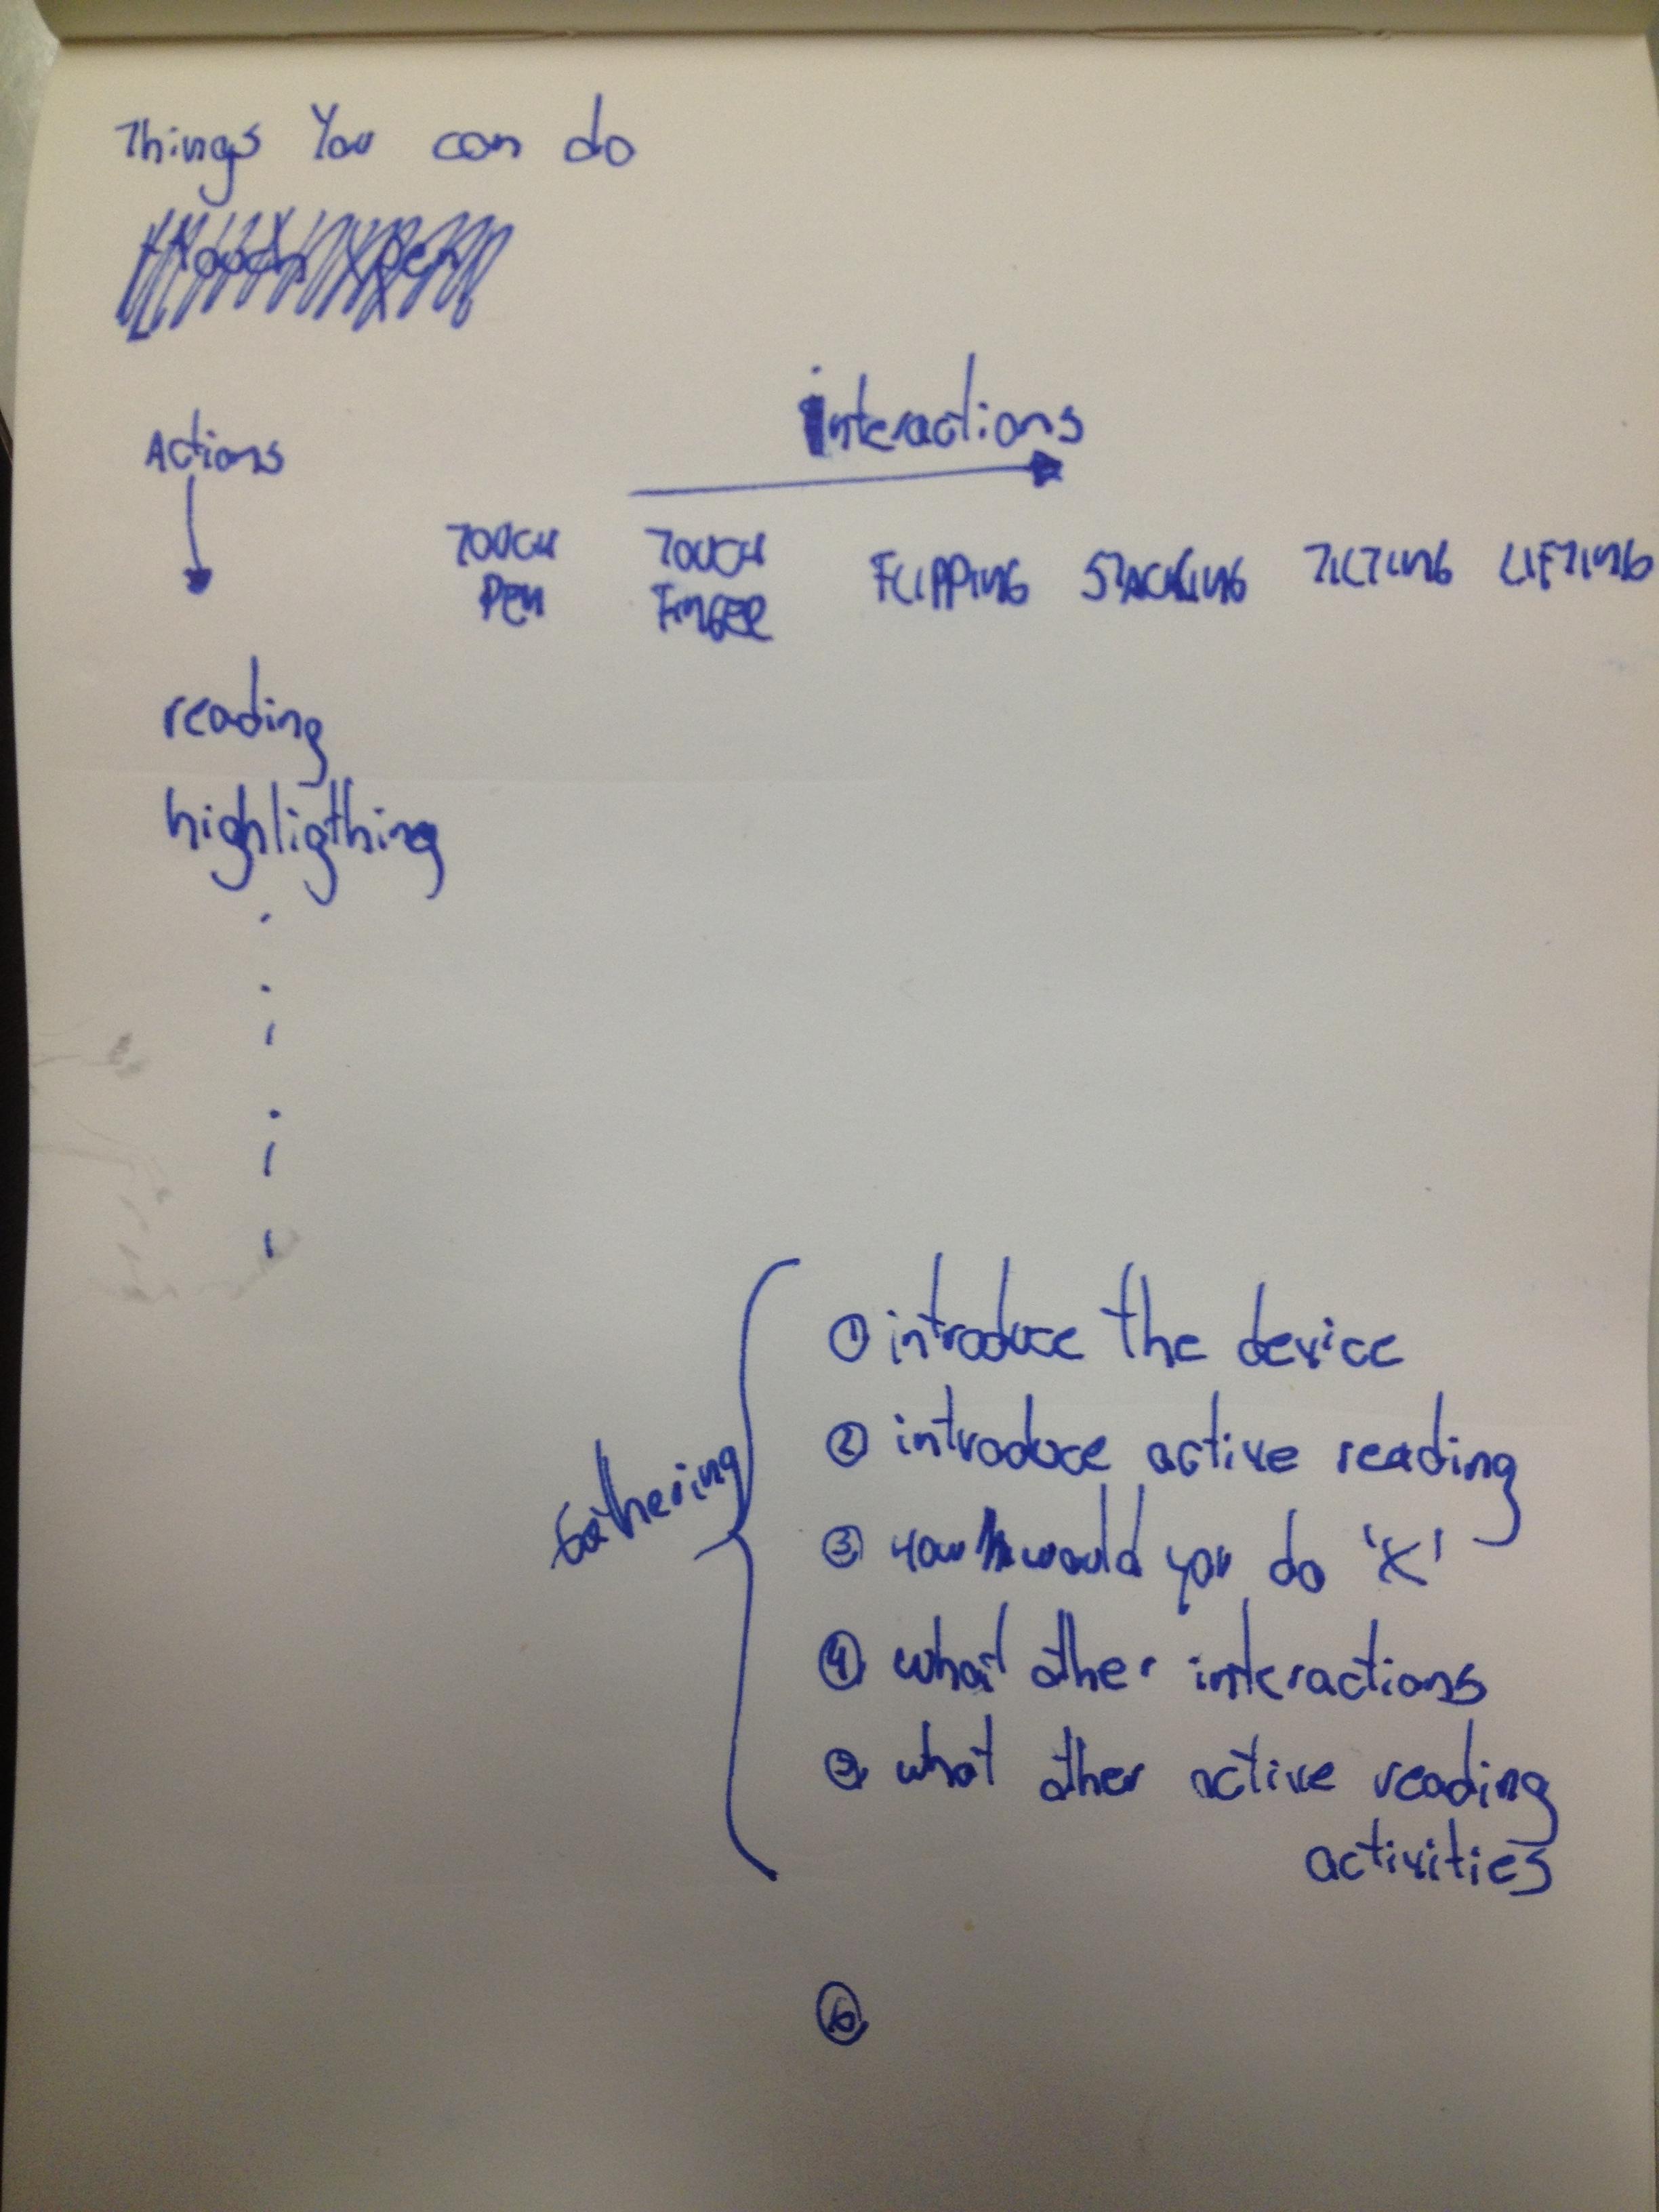 Things You can do
touch pen
interactions
Actions
TOUCH PEN
TOUCH FINGER
FLIPPING
STACKING
TILTING
LIFTING
reading
highligthing
Gathering
① introduce the device
② introduce active reading
③ How would you do 'X'
④ what other interactions
⑤ what other active reading
activities
⑥